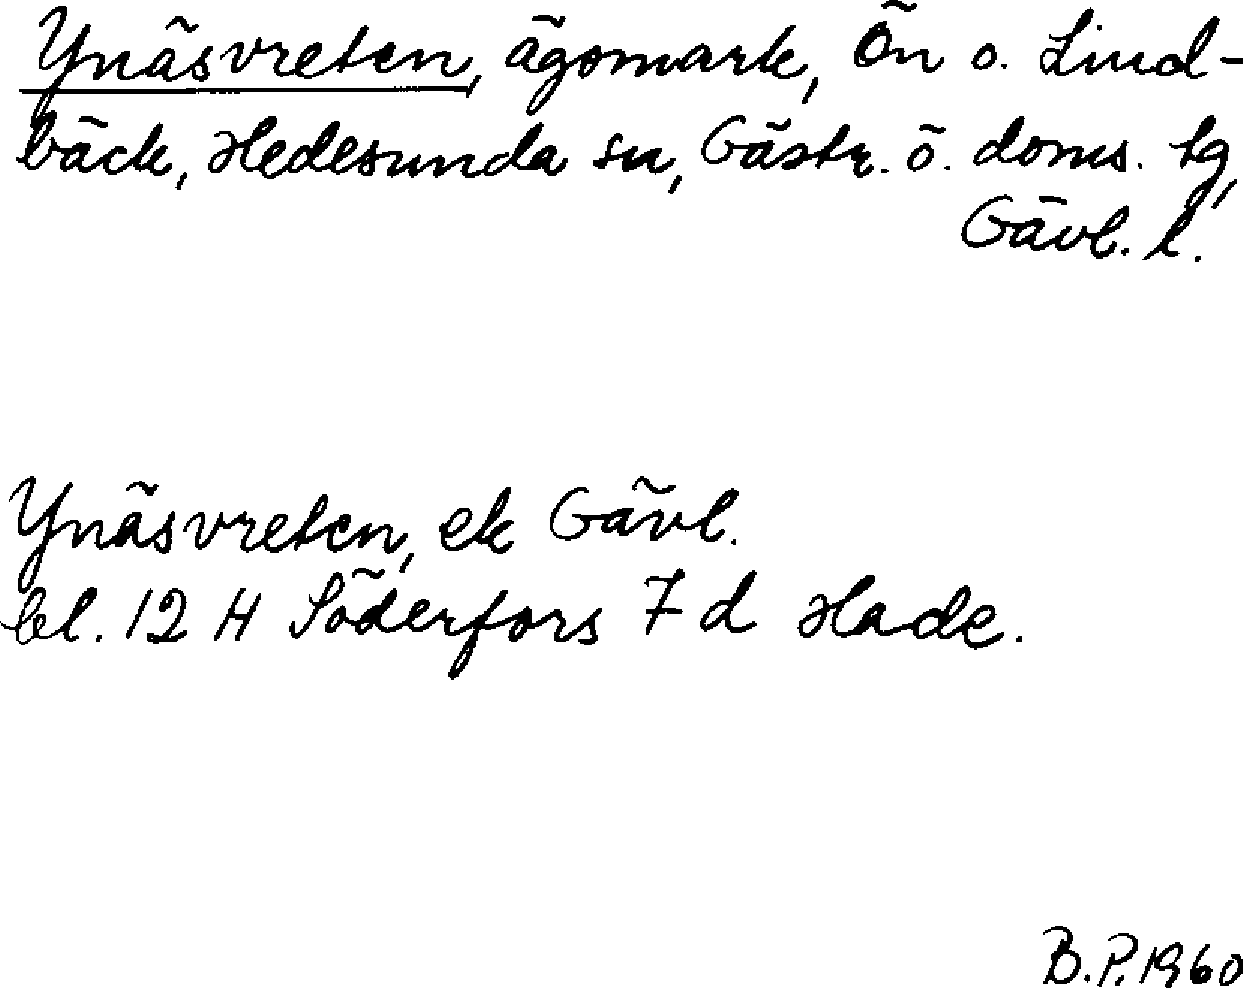 Ynäsvreten, ägomark, Ön o. Lind-
bäck, Hedesunda sn, Gästr. ö. doms. tg,
Gävl. l.
Ynäsvreten, ek Gävl.
bl. 12 H Söderfors 7 d Hade.
B.P. 1960